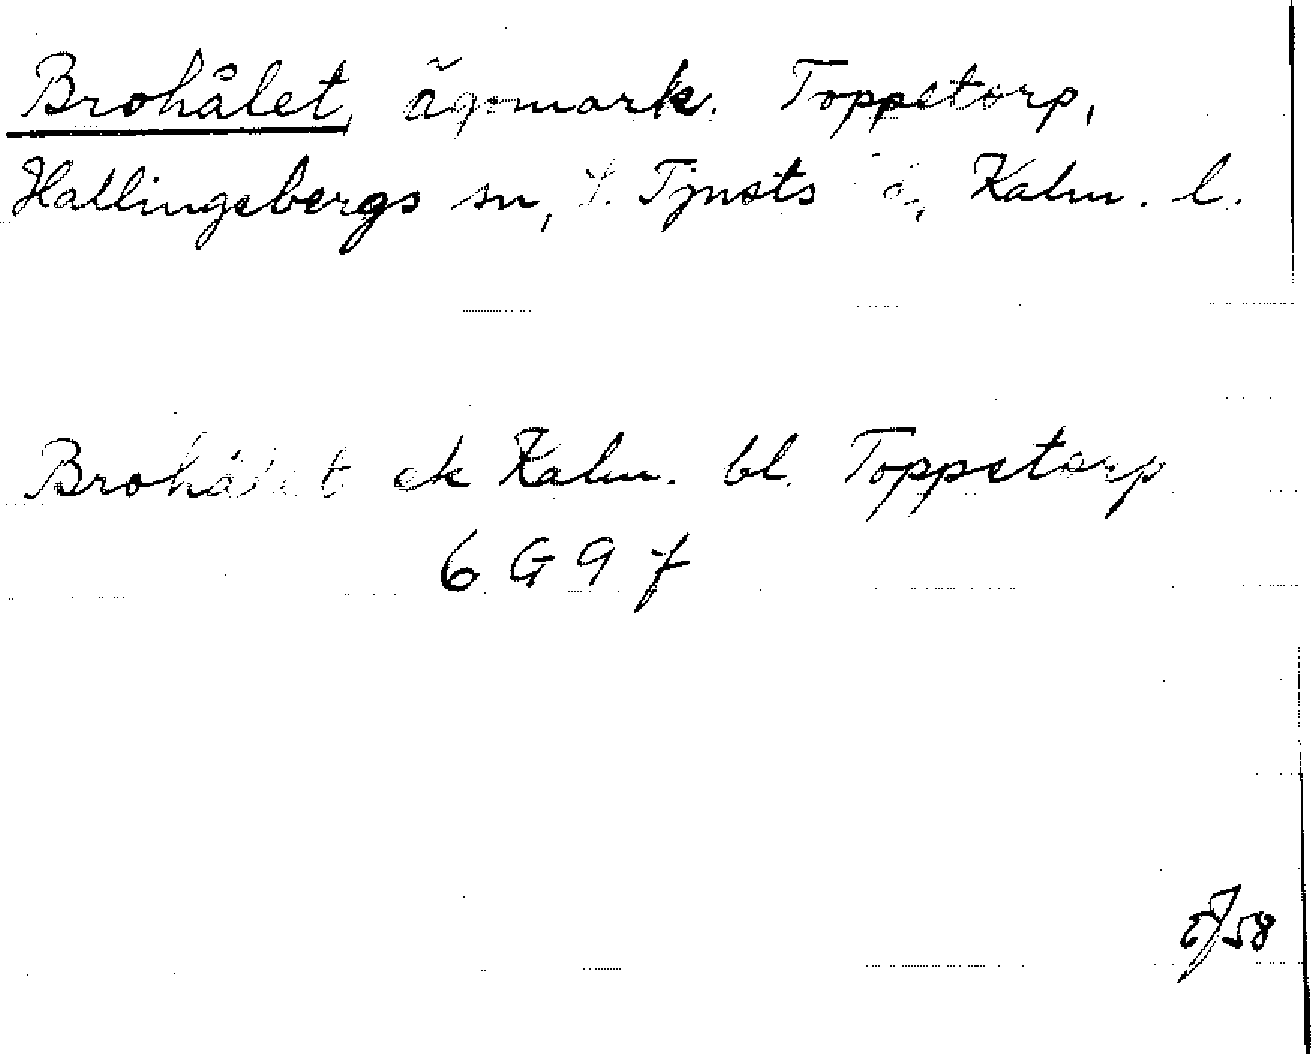 Brohålet, ägomark. Toppetorp,
Hallingebergs sn, S. Tjusts hd, Kalm. l.
Brohålet ek Kalm. bl. Toppetorp
6 G 9 f
58